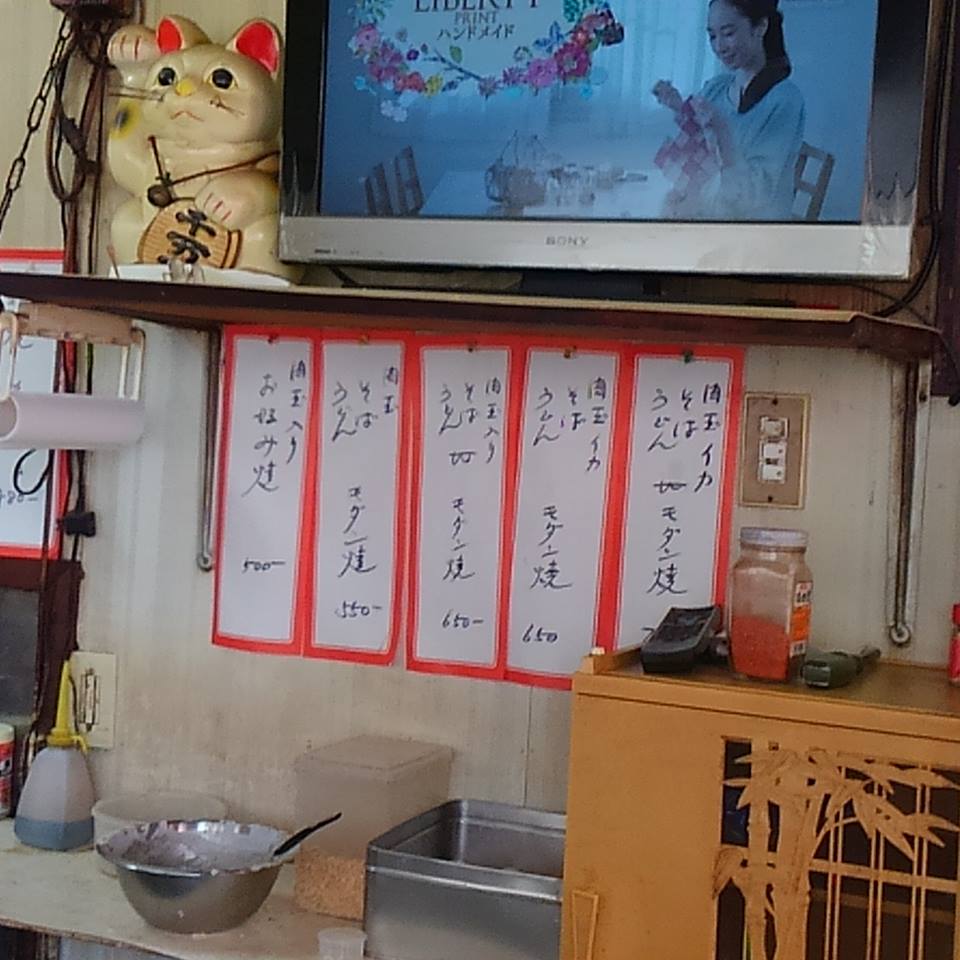 LIBERTY
PRINT
ハンドメイド
SONY
千万
肉玉入り
お好み焼
500-
肉玉
そば
うどん
モダン焼
550-
肉玉入り
そば
うどん
モダン焼
650-
肉玉イカ
そば
うどん
モダン焼
650
肉玉イカ
そば
うどん
モダン焼